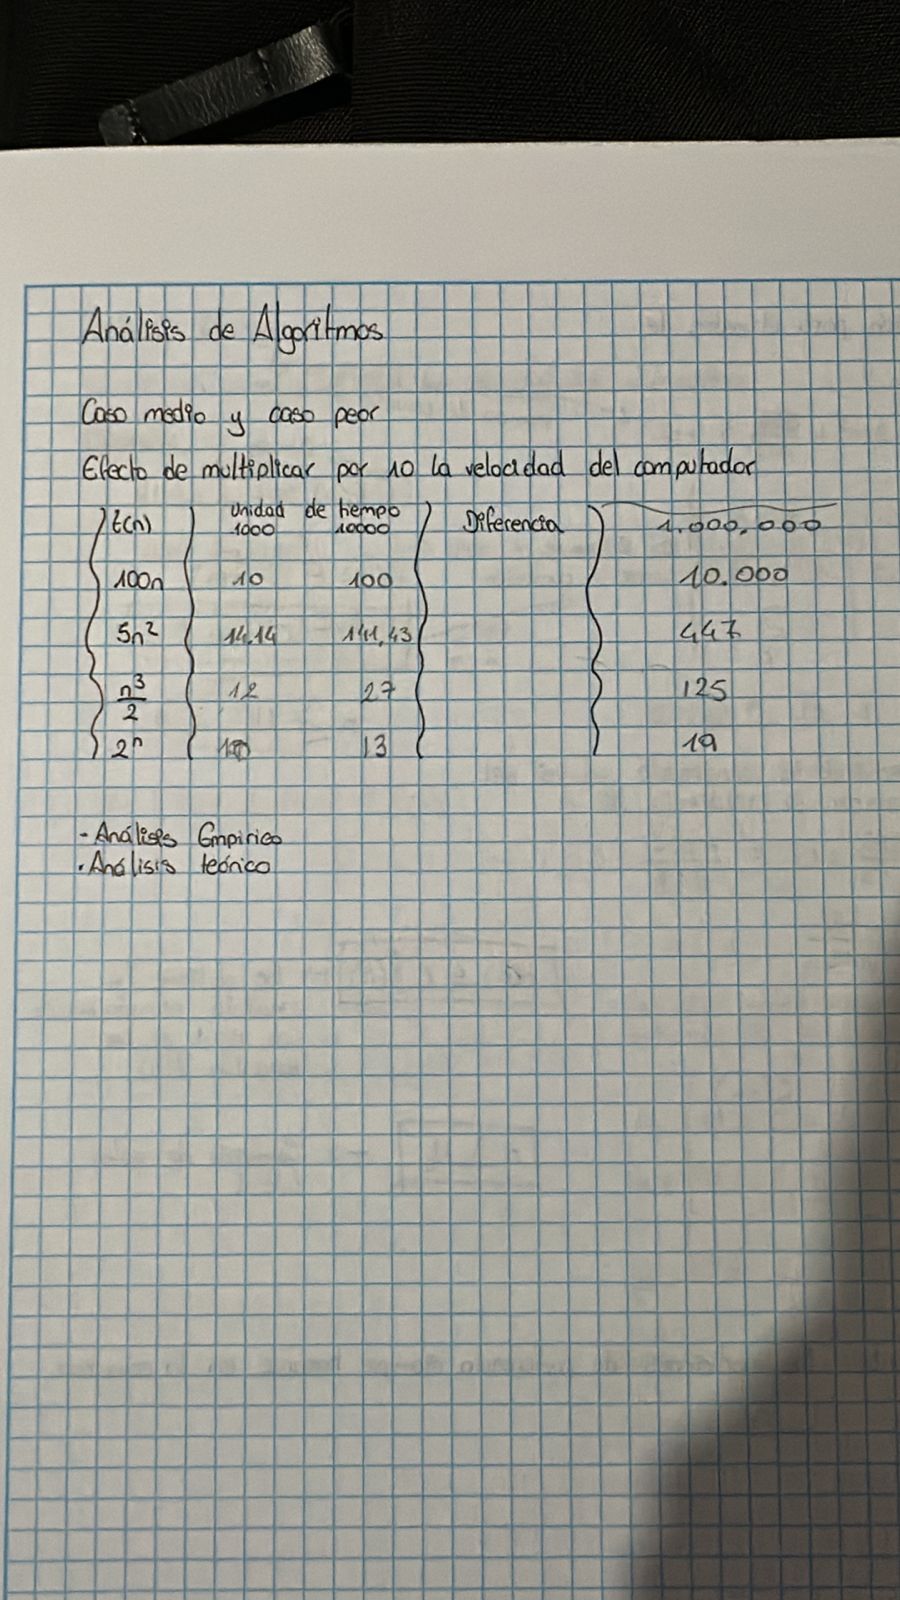 Análisis de Algoritmos
Caso medio y caso peor
Efecto de multiplicar por 10 la velocidad del computador
t(n) unidad de tiempo Diferencia 1.000.000
1000 10000
100n 10 100 10.000
5n² 14,14 141,43 447
n³/2 12 27 125
2ⁿ 13 19
- Análisis Empirico
· Análisis teórico